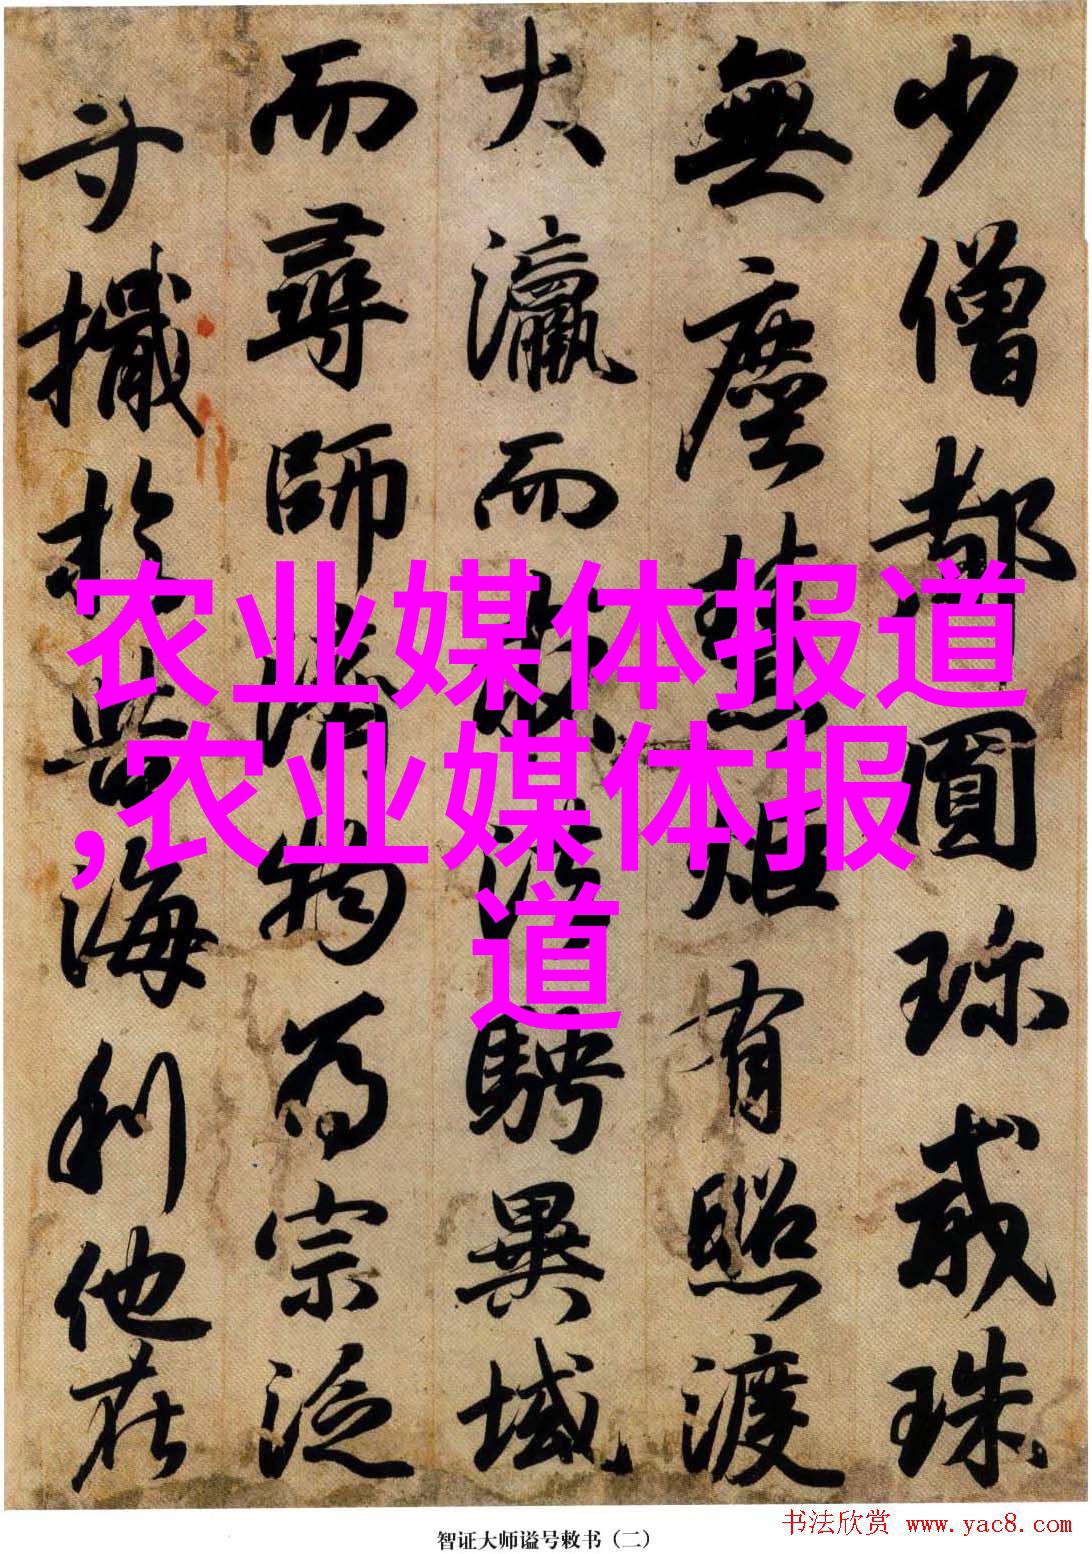 少僧都圓珍戒珠
無塵慧炬有照渡
大瀛而騁異域
而尋師濟物為宗泛
寸檝於苦海利他在
农业媒体报道
,农业媒体报
道
智证大师谥号敕书（二）
书法欣赏 www.yac8.com